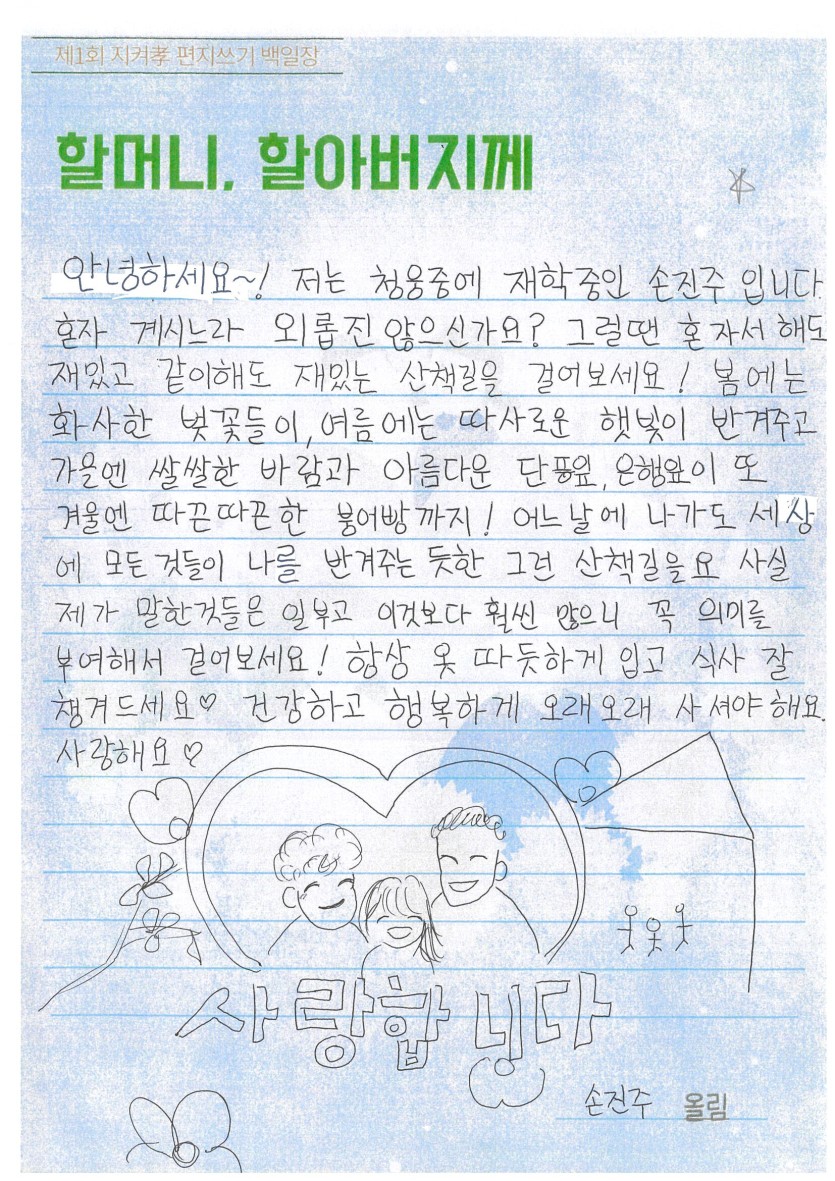 제1회 지켜孝 편지쓰기 백일장
할머니, 할아버지께
안녕하세요~! 저는 청웅중에 재학중인 손진주 입니다.
혼자 계시느라 외롭진 않으신가요? 그럴땐 혼자서 해도
재밌고 같이해도 재밌는 산책길을 걸어보세요! 봄에는
화사한 벚꽃들이, 여름에는 따사로운 햇빛이 반겨주고
가을엔 쌀쌀한 바람과 아름다운 단풍잎, 은행잎이 또
겨울엔 따끈따끈한 붕어빵까지! 어느날에 나가도 세상
에 모든 것들이 나를 반겨주는 듯한 그런 산책길을요 사실
제가 말한것들은 일부고 이것보다 훨씬 많으니 꼭 의미를
부여해서 걸어보세요! 항상 옷 따듯하게 입고 식사 잘
챙겨드세요♡ 건강하고 행복하게 오래오래 사셔야해요.
사랑해요♡
사랑합니다
손진주 올림